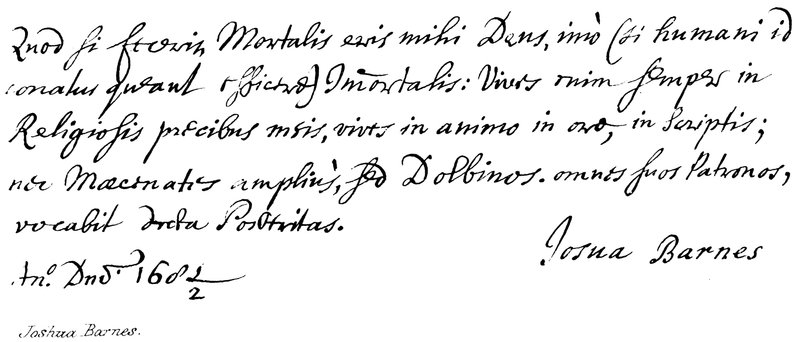 Quod si feceris Mortalis eris mihi Deus, imò (si humani id
conatus queant efficere) Im̄ortalis: Vives enim semper in
Religiosis precibus meis, vives in animo in ore, in Scriptis;
nec Mæcenates ampliùs, sed Dolbinos. omnes suos Patronos,
vocabit docta Posteritas.
Josua Barnes
An.º Dnō. 168 1/2
Joshua Barnes.